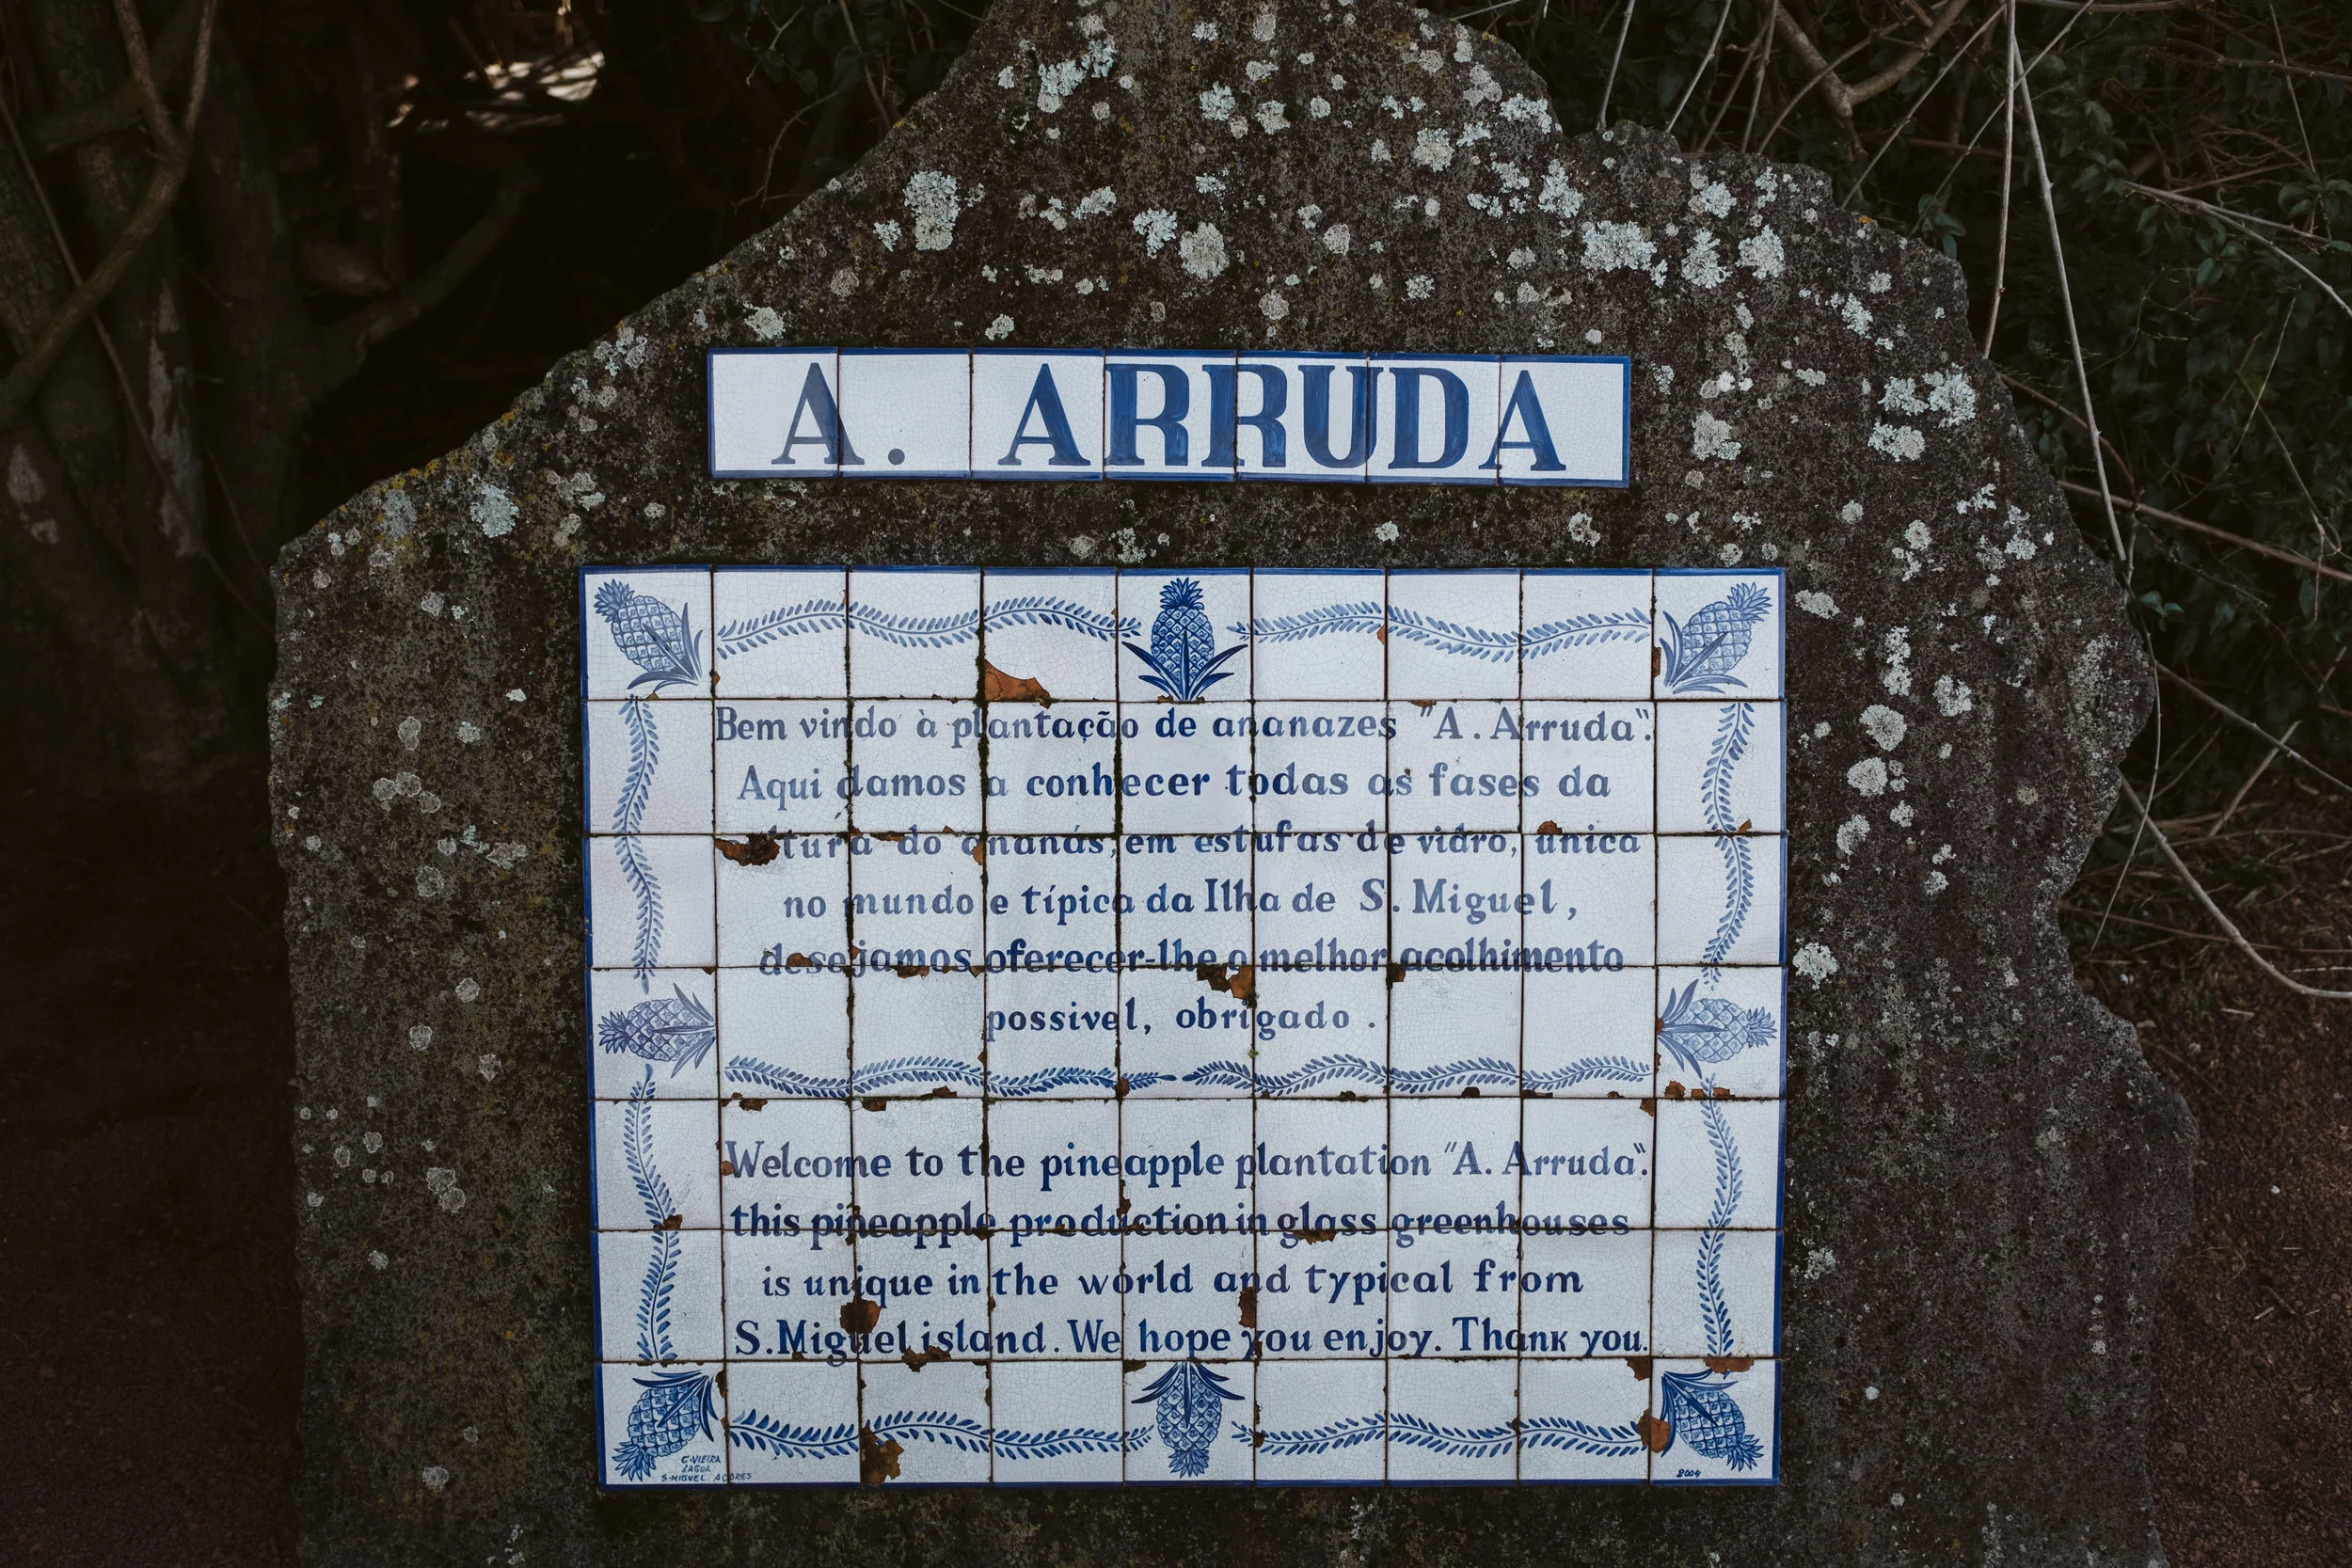 A. ARRUDA
Bem vindo à plantação de ananazes "A. Arruda".
Aqui damos a conhecer todas as fases da
do ananás, em estufas de vidro, única
no mundo e típica da Ilha de S. Miguel,
desejamos oferecer-lhe o melhor acolhimento
possivel, obrigado .
Welcome to the pineapple plantation "A. Arruda".
this pineapple production in glass greenhouses
is unique in the world and typical from
S.Miguel island. We hope you enjoy. Thank you.
C.VIEIRA
LAGOA
S.MIGUEL AÇORES
2004